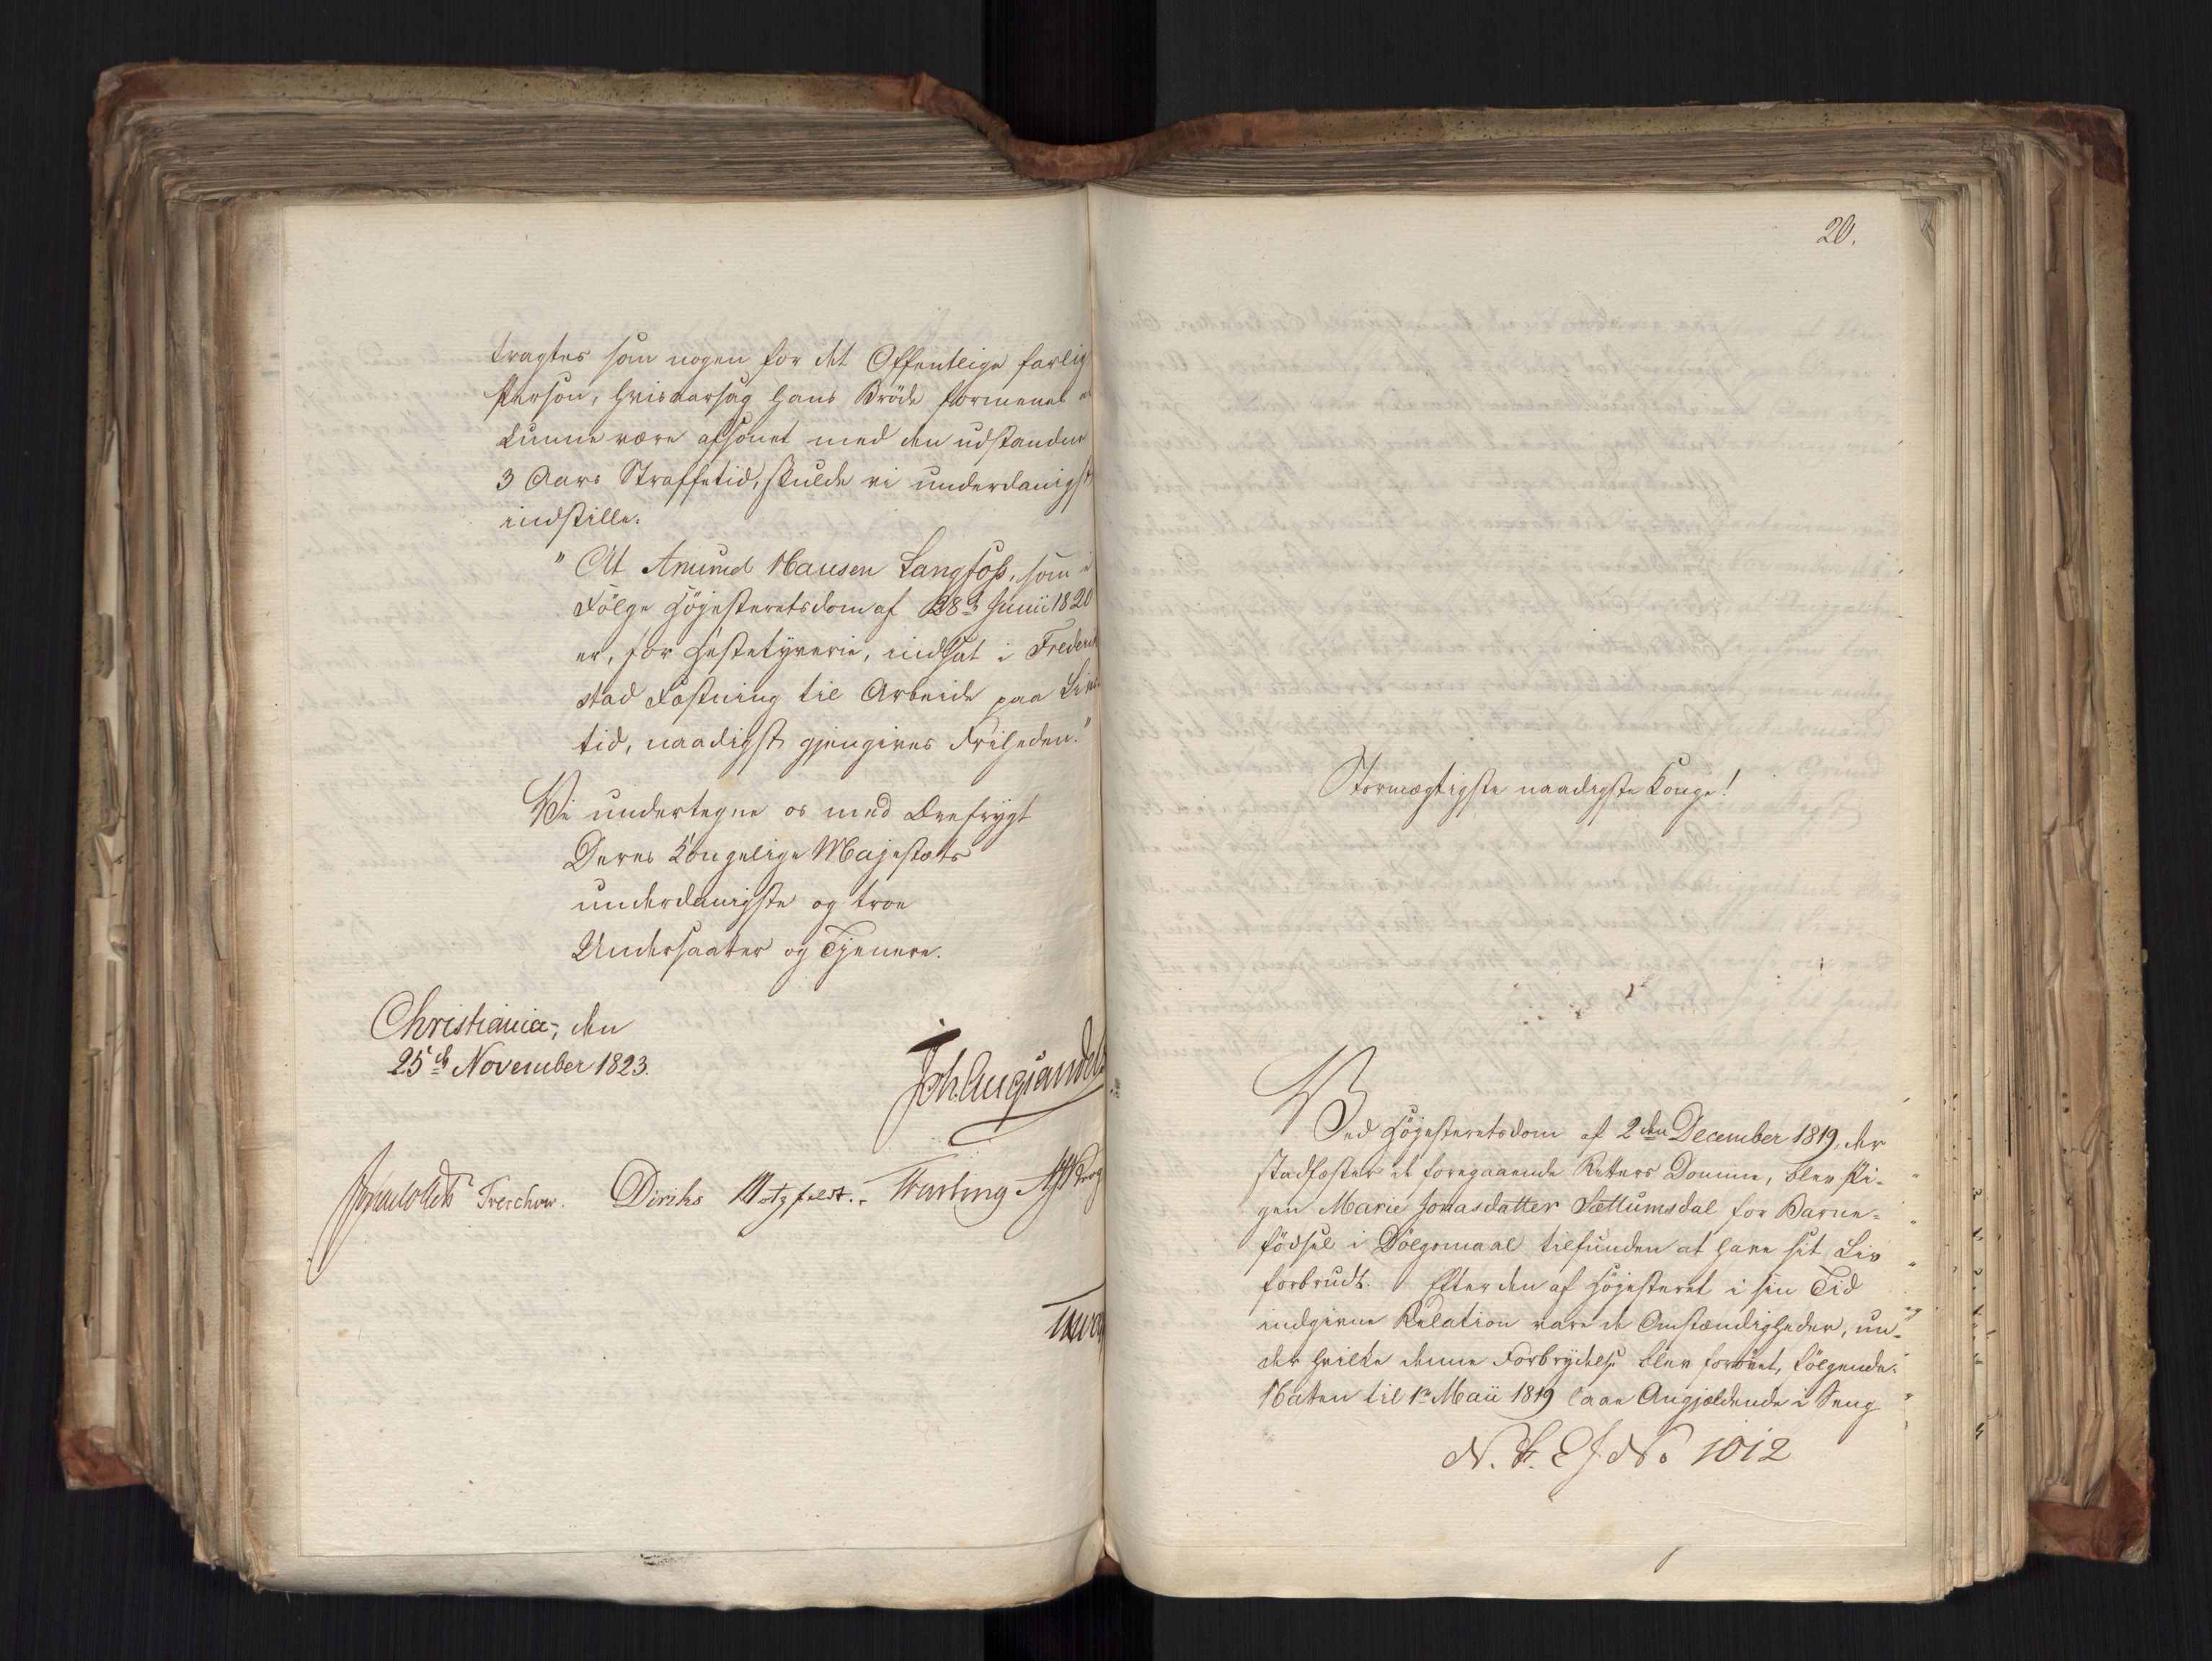 tragtes som nogen for det Offentlige farlig
Person, hvisaarsag hans Bröde formenes at
kunne være afsonet med den udstandne
3 Aars Straffetid, skulde vi underdanigst
indstille:
"At Amund Hansen Langfoss, som i
Følge Høiesteretsdom af 28d Junii 1820
er, for Hestetyverie, indsat i Frederik
stad Fæstning til Arbeide paa Livs
tid, naadigst gjengives Friheden."
Vi undertegne os med Ærefrygt
Deres Kongelige Majestæts
underdanigste og troe
Undersaatter og Tjenere.
Christiania, den
25de November 1823.
Joh. Aug. Sandels
Sommerhielm Treschow. Diriks Motzfeldt. Fasting Krog
20.
Stormægtigste naadigste Konge!
Ved Høiesteretsdom af 2den December 1819, der
stadfæster de foregaaende Retters Domme, blev Pi-
gen Marie Jonasdatter Sættumsdal for Barne-
fødsel i Dølgsmaal tilfunden at have sit Liv
forbrudt. Efter den af Høiesteret i sin Tid
indgivne Relation vare de Omstændigheder, un-
der hvilke denne Forbrydelse blev forøvet, følgende:
Natten til 1ste Maii 1819 laae Angjældende i Seng
No 1012